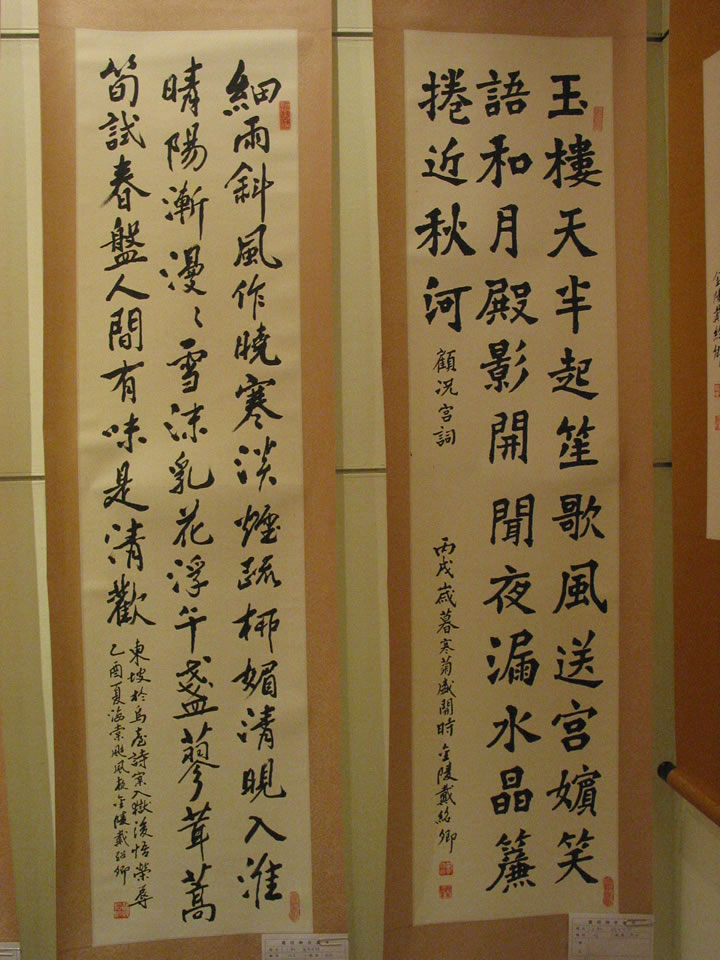 玉樓天半起笙歌風送宮嬪笑
語和月殿影開聞夜漏水晶簾
捲近秋河 顧況宮詞 丙戌歲暮寒菊盛開時 金陵戴紹卿
細雨斜風作曉寒淡煙疏柳媚清晛入淮
晴陽漸漫〻雪沫乳花浮午盞蓼茸蒿
筍試春盤人間有味是清歡
東坡於烏臺詩案入獄後悟榮辱
乙酉夏海棠颱風夜金陵戴紹卿